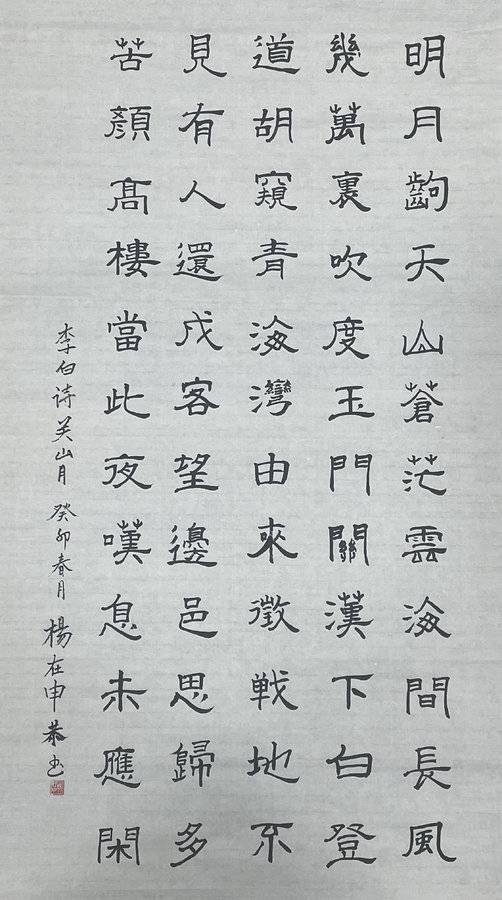 明月齣天山蒼茫雲海間長風
幾萬裏吹度玉門關漢下白登
道胡窺青海灣由來徵戦地不
見有人還戍客望邊邑思歸多
苦顏高樓當此夜嘆息未應閑
李白诗关山月 癸卯春月 楊在申恭书